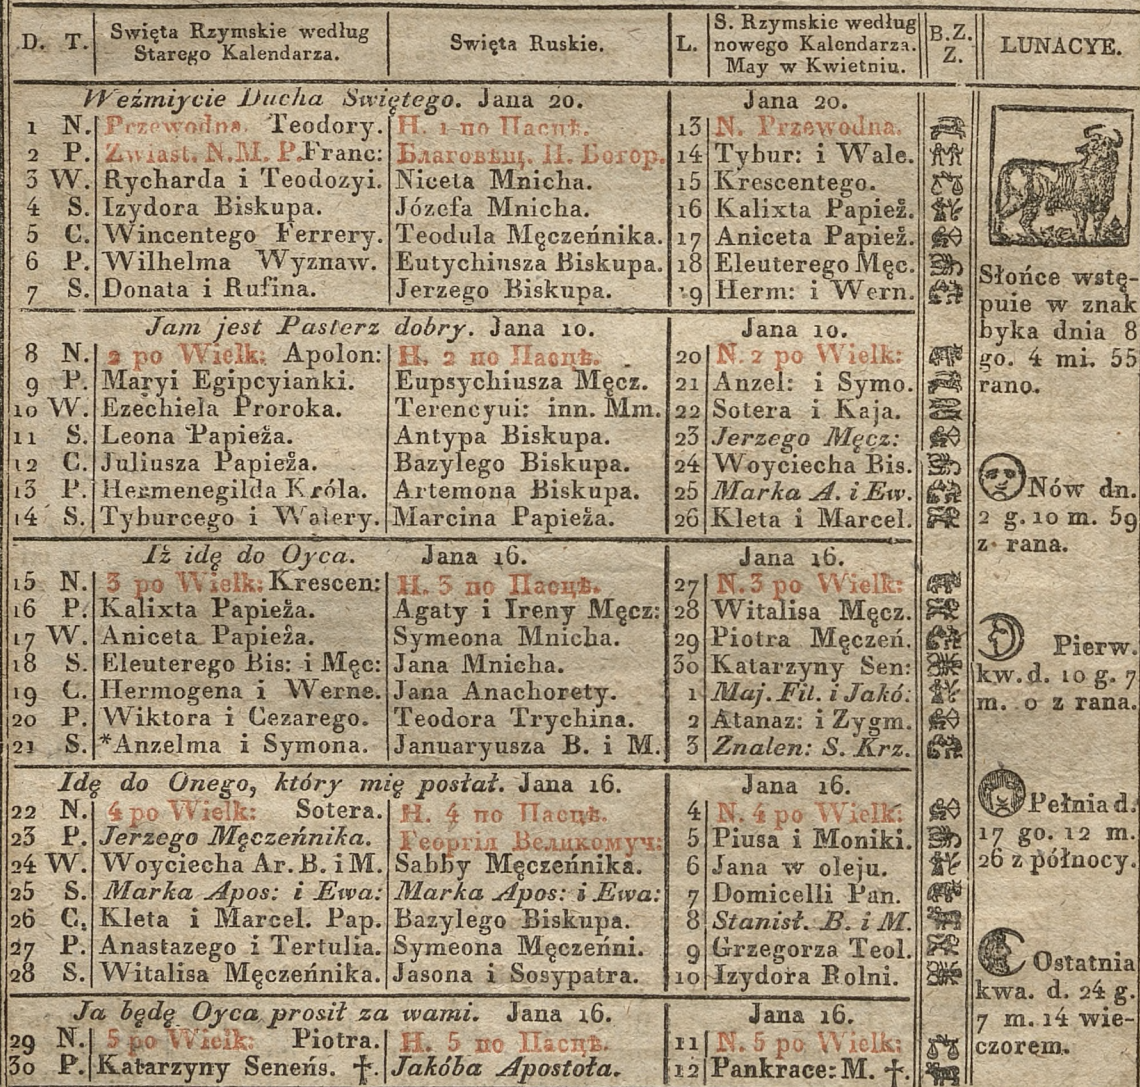 D. T. Swięta Rzymskie według Starego Kalendarza. Swięta Ruskie. L. S. Rzymskie według nowego Kalendarza. May w Kwietniu. B.Z. Z. LUNACYE.
Weźmiycie Ducha Swiętego. Jana 20. Jana 20.
1 N. Przewodna. Teodory. Н. 1 по Пасцѣ. 13 N. Przewodna.
2 P. Zwiast. N. M. P. Franc: Благовѣщ. П. Богор. 14 Tybur: i Wale.
3 W. Rycharda i Teodozyi. Niceta Mnicha. 15 Krescentego.
4 S. Izydora Biskupa. Józefa Mnicha. 16 Kalixta Papież.
5 C. Wincentego Ferrery. Teodula Męczeńnika. 17 Aniceta Papież.
6 P. Wilhelma Wyznaw. Eutychiusza Biskupa. 18 Eleuterego Męc.
7 S. Donata i Rufina. Jerzego Biskupa. 19 Herm: i Wern.
Jam jest Pasterz dobry. Jana 10. Jana 10.
8 N. 2 po Wielk: Apolon: Н. 2 по Пасцѣ. 20 N. 2 po Wielk:
9 P. Maryi Egipcyianki. Eupsychiusza Męcz. 21 Anzel: i Symo.
10 W. Ezechiela Proroka. Terencyui: inn. Mm. 22 Sotera i Kaja.
11 S. Leona Papieża. Antypa Biskupa. 23 Jerzego Męcz:
12 C. Juliusza Papieża. Bazylego Biskupa. 24 Woyciecha Bis.
13 P. Hermenegilda Króla. Artemona Biskupa. 25 Marka A. i Ew.
14 S. Tyburcego i Walery. Marcina Papieża. 26 Kleta i Marcel.
Iż idę do Oyca. Jana 16. Jana 16.
15 N. 3 po Wielk: Krescen: Н. 3 по Пасцѣ. 27 N. 3 po Wielk:
16 P. Kalixta Papieża. Agaty i Ireny Męcz: 28 Witalisa Męcz.
17 W. Aniceta Papieża. Symeona Mnicha. 29 Piotra Męczeń.
18 S. Eleuterego Bis: i Męc: Jana Mnicha. 30 Katarzyny Sen:
19 C. Hermogena i Werne. Jana Anachorety. 1 Maj. Fil. i Jakó:
20 P. Wiktora i Cezarego. Teodora Trychina. 2 Atanaz: i Zygm.
21 S. *Anzelma i Symona. Januaryusza B. i M. 3 Znalen: S. Krz.
Idę do Onego, który mię posłał. Jana 16. Jana 16.
22 N. 4 po Wielk: Sotera. Н. 4 по Пасцѣ. 4 N. 4 po Wielk:
23 P. Jerzego Męczeńnika. Георгія Великомуч: 5 Piusa i Moniki.
24 W. Woyciecha Ar. B. i M. Sabby Męczeńnika. 6 Jana w oleju.
25 S. Marka Apos: i Ewa: Marka Apos: i Ewa: 7 Domicelli Pan.
26 C. Kleta i Marcel. Pap. Bazylego Biskupa. 8 Stanisł. B. i M.
27 P. Anastazego i Tertulia. Symeona Męczeńni. 9 Grzegorza Teol.
28 S. Witalisa Męczeńnika. Jasona i Sosypatra. 10 Izydora Rolni.
Ja będę Oyca prosił za wami. Jana 16. Jana 16.
29 N. 5 po Wielk: Piotra. Н. 5 по Пасцѣ. 11 N. 5 po Wielk:
30 P. Katarzyny Seneńs. †. Jakóba Apostoła. 12 Pankrace: M. †.
Słońce wstę-
puie w znak
byka dnia 8
go. 4 mi. 55
rano.
Nów dn.
2 g. 10 m. 59
z rana.
Pierw.
kw. d. 10 g. 7
m. 0 z rana.
Pełnia d.
17 go. 12 m.
26 z północy.
Ostatnia
kwa. d. 24 g.
7 m. 14 wie-
czorem.